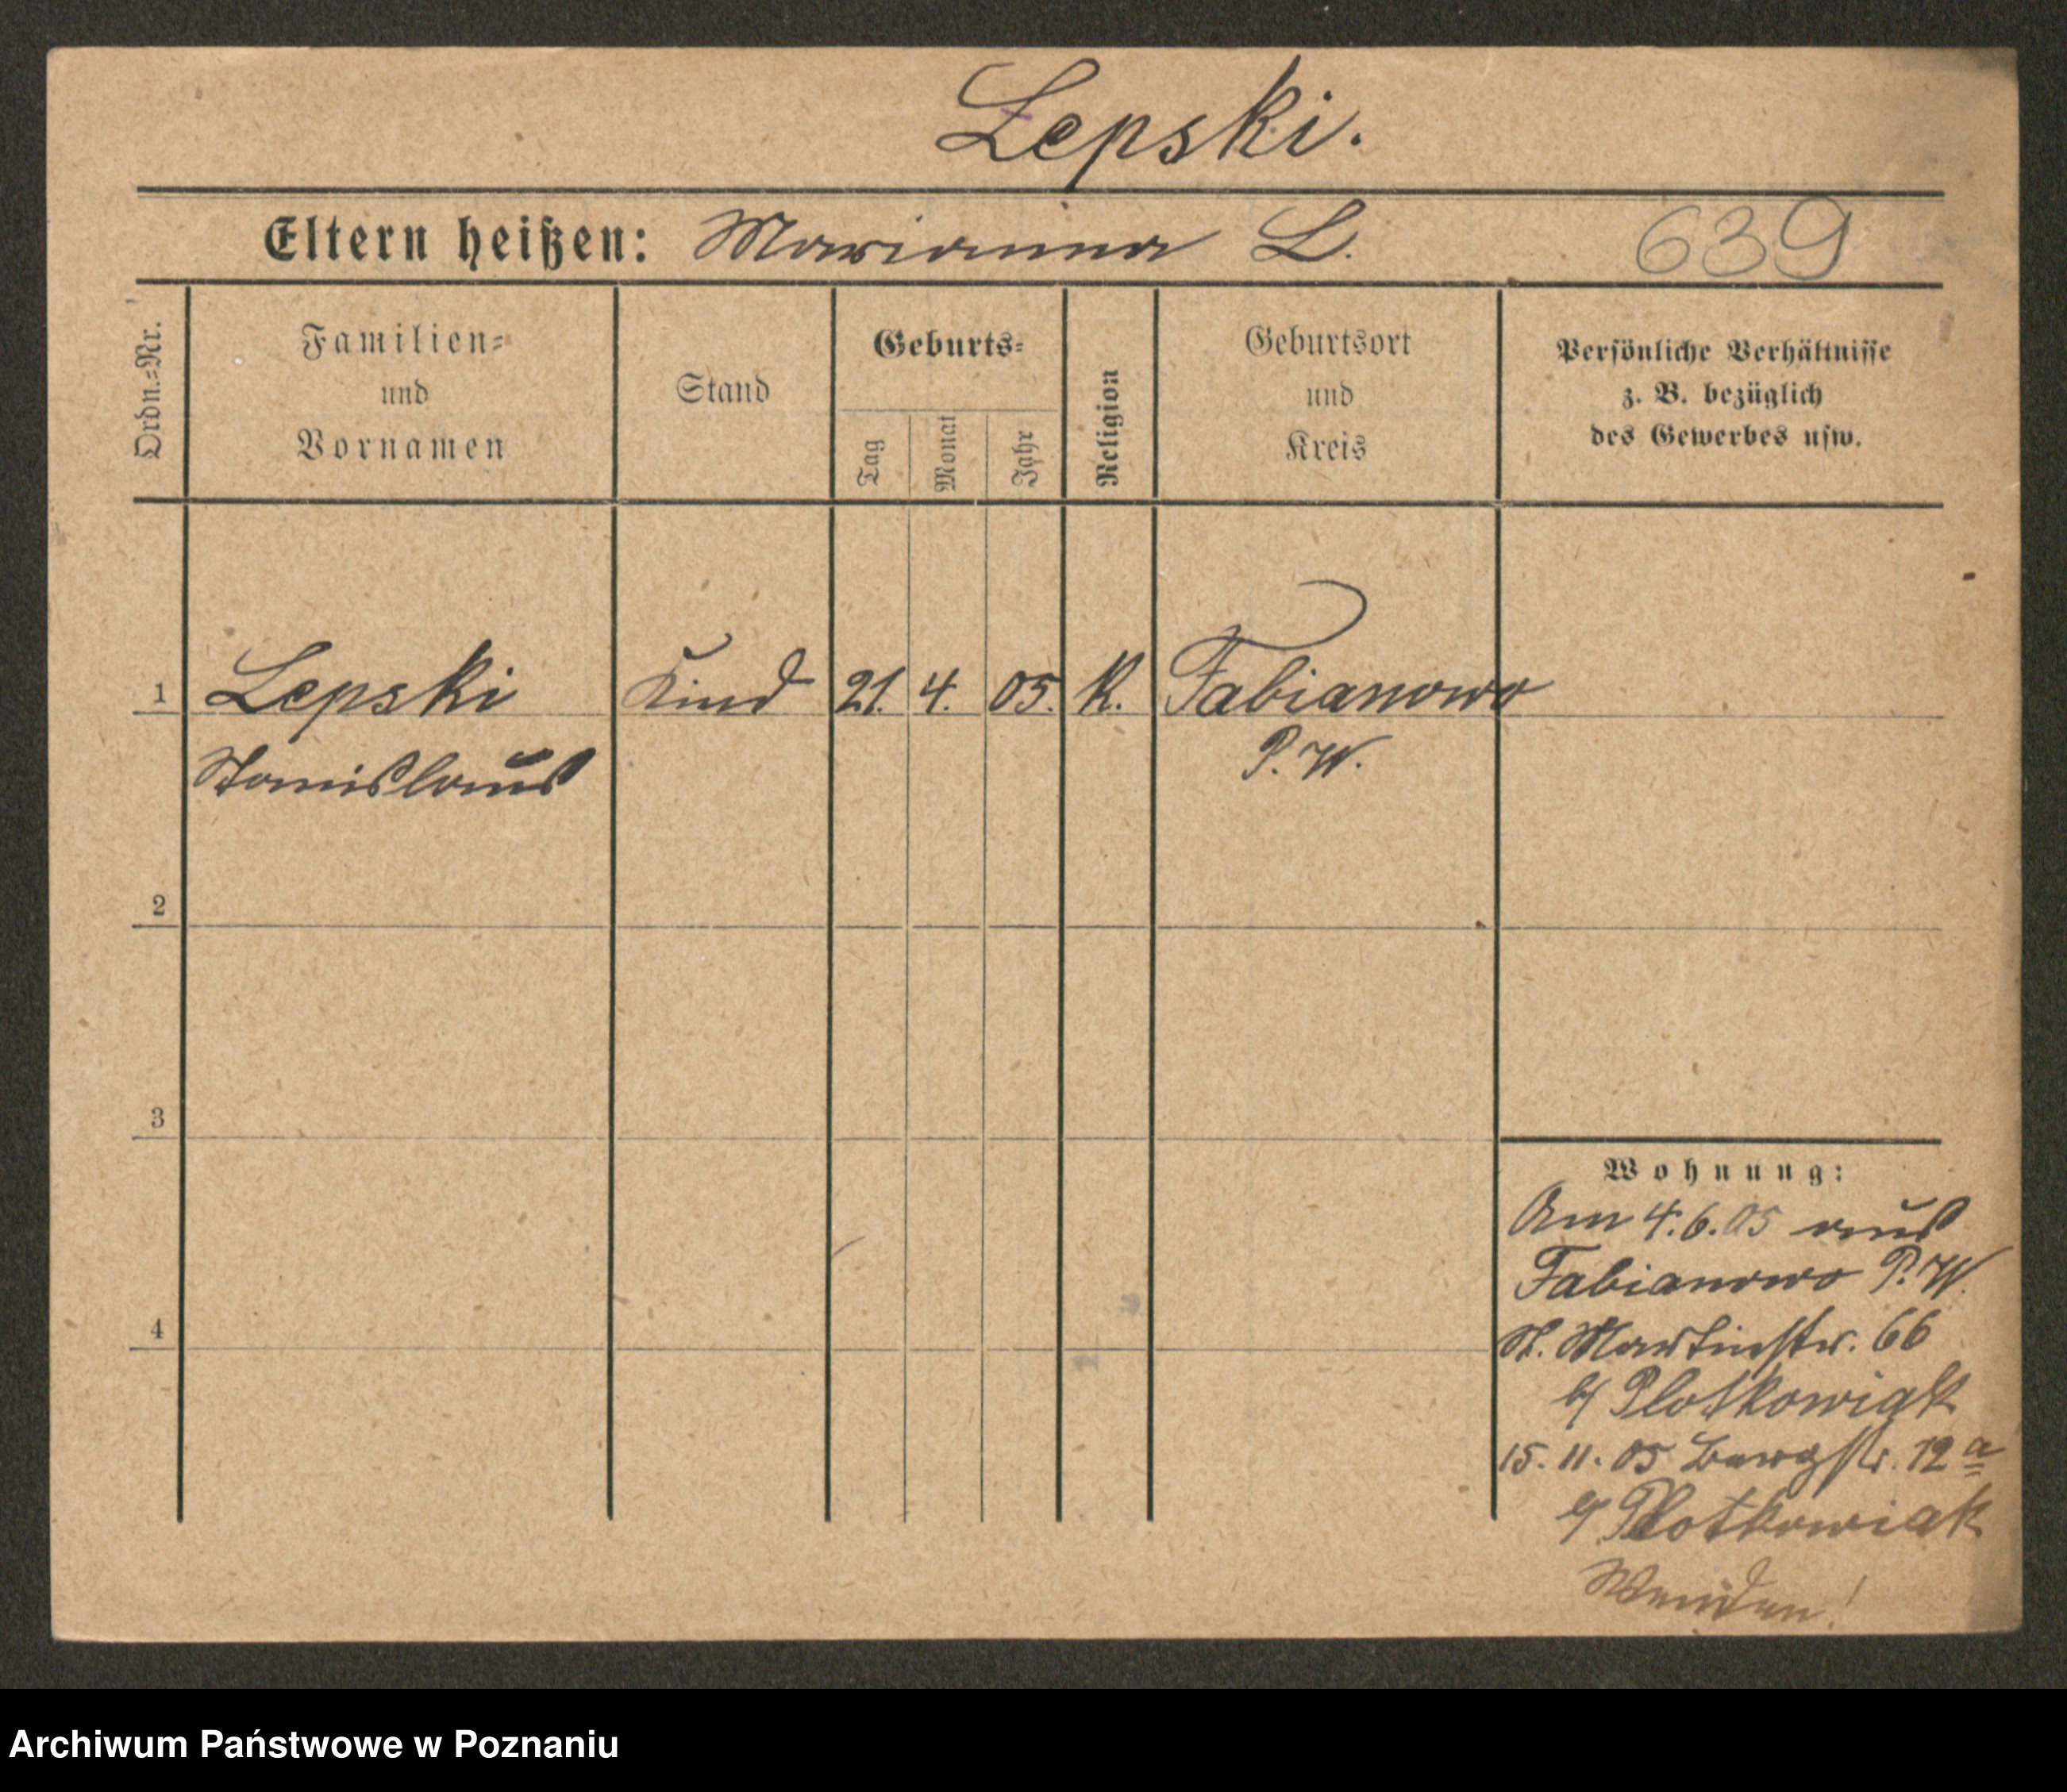 Lepski.
Eltern heißen: Marianna L. 639
Ordn.-Nr.
Familien-
und
Vornamen
Stand
Geburts-
Tag
Monat
Jahr
Religion
Geburtsort
und
Kreis
Persönliche Verhältnisse
z. B. bezüglich
des Gewerbes usw.
1 Lepski Kind 21. 4. 05. K. Fabianowo
Stanislaus P. W.
2
3
4
Wohnung:
Am 4.6.05 aus
Fabianowo P. W.
St. Martinstr. 66
b/ Plotkowiak
15. 11. 05 Bergstr. 12 a
b/ Plotkowiak
Wenden!
Archiwum Państwowe w Poznaniu